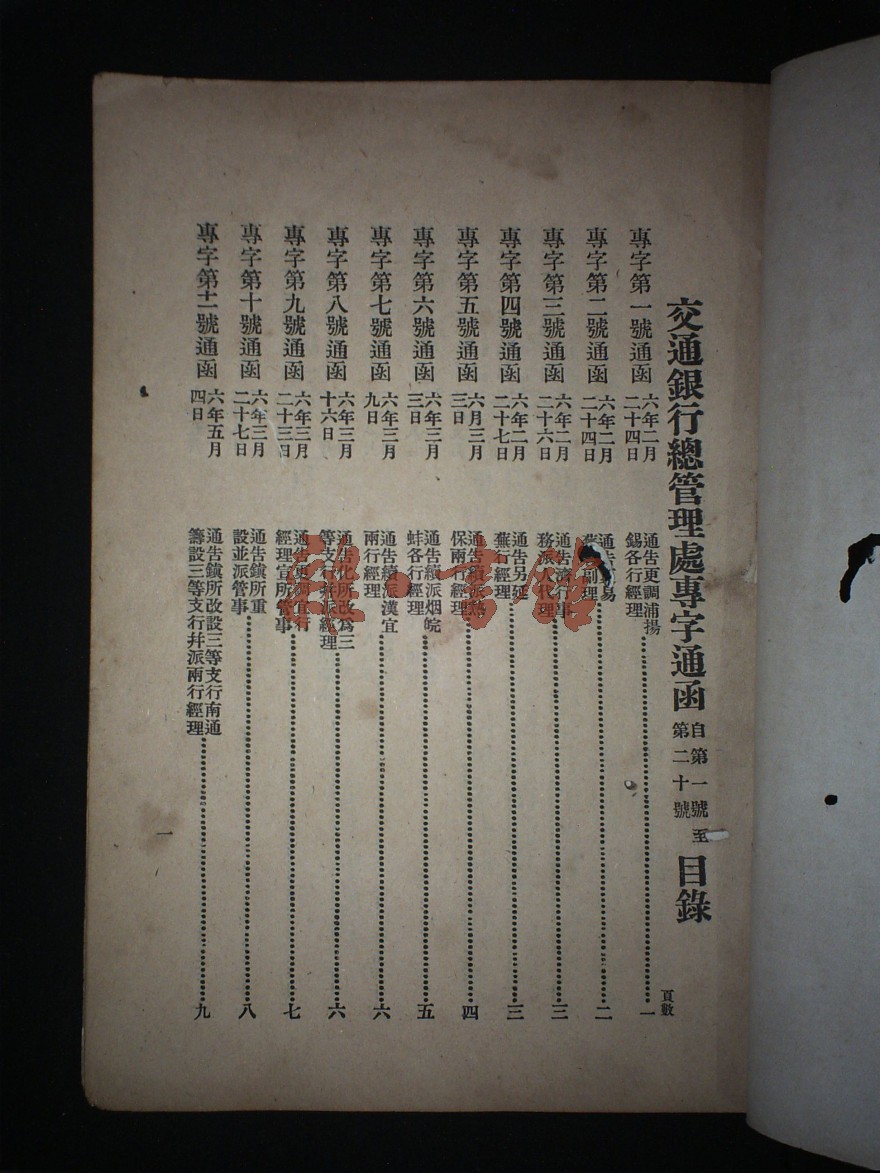 交通銀行總管理處專字通函自第一號至第二十號目錄
頁數
專字第一號通函 六年二月二十四日 通告更調浦揚錫各行經理 一
專字第二號通函 六年二月二十四日 通易副理 二
專字第三號通函 六年二月二十六日 通告濟行事務派人代理 三
專字第四號通函 六年二月二十七日 通告另延蕪行經理 三
專字第五號通函 六月三月三日 通告續派保兩行經理 四
專字第六號通函 六年三月三日 通告續派烟皖蚌各行經理 五
專字第七號通函 六年三月九日 通告續派漢宜兩行經理 六
專字第八號通函 六年三月十六日 通告化所改爲三等支行并派經理 六
專字第九號通函 六年三月二十三日 通告更調宜行經理宣所管事 七
專字第十號通函 六年三月二十七日 通告鎮所重設並派管事 八
專字第十一號通函 六年五月四日 通告鎮所改設三等支行南通籌設三等支行并派兩行經理 九
一